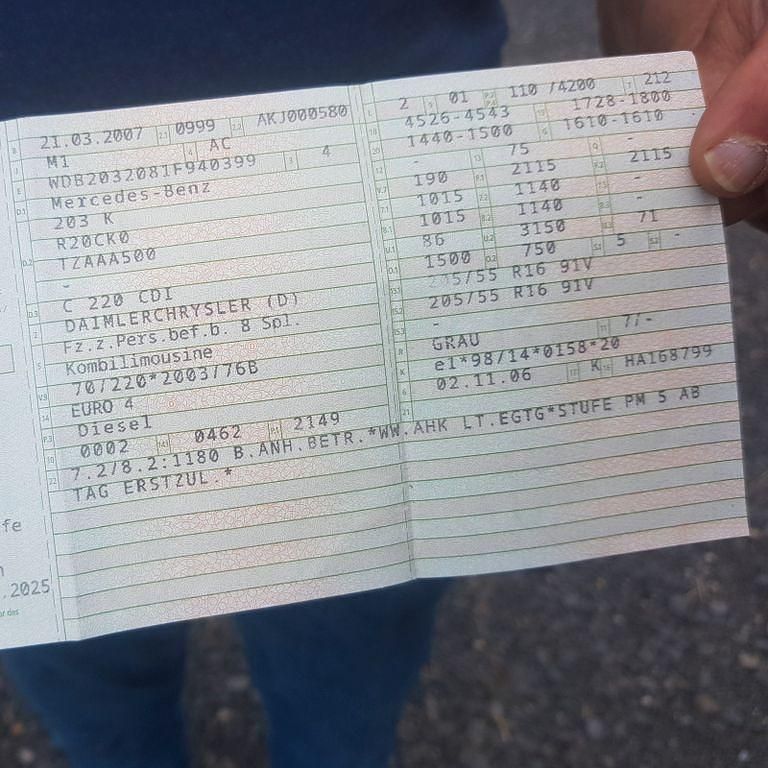 21.03.2007 2.1 0999 2.2 AKJ000580
M1 4 AC
WDB2032081F940399 3 4
Mercedes-Benz
203 K
R20CK0
TZAAA500
-
C 220 CDI
DAIMLERCHRYSLER (D)
Fz.z.Pers.bef.b. 8 Spl.
Kombilimousine
70/220*2003/76B
EURO 4
Diesel
0002 0462 2149
7.2/8.2:1180 B.ANH.BETR.*WW.AHK LT.EGTG*STUFE PM 5 AB
TAG ERSTZUL.*
2 9 01 110 /4200 212
4526-4543 1728-1800
1440-1500 1610-1610
- 75 -
190 2115 2115
1015 1140 -
1015 1140 -
86 3150 71
1500 750 5 -
205/55 R16 91V
205/55 R16 91V
-
GRAU 7/-
e1*98/14*0158*20
02.11.06 K HA168799
fe
.2025